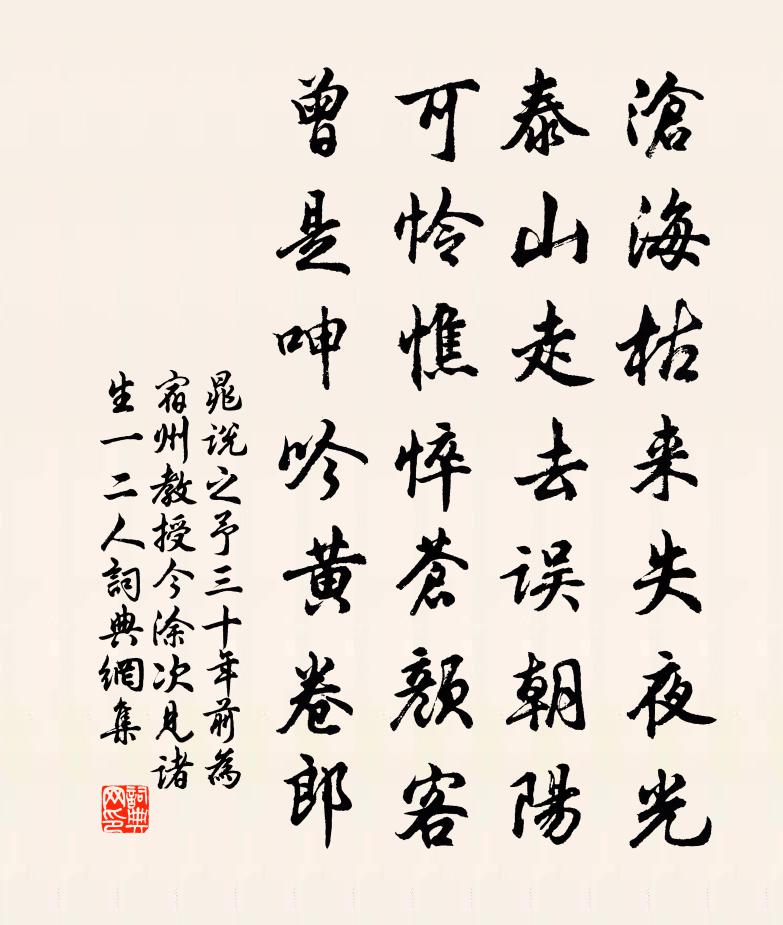 滄海枯来失夜光
泰山走去误朝陽
可怜憔悴蒼顔客
曾是呻吟黄卷郎
晁说之予三十年前為
宿州教授今涂次见诸
生一二人詞典網集
詞典
网印